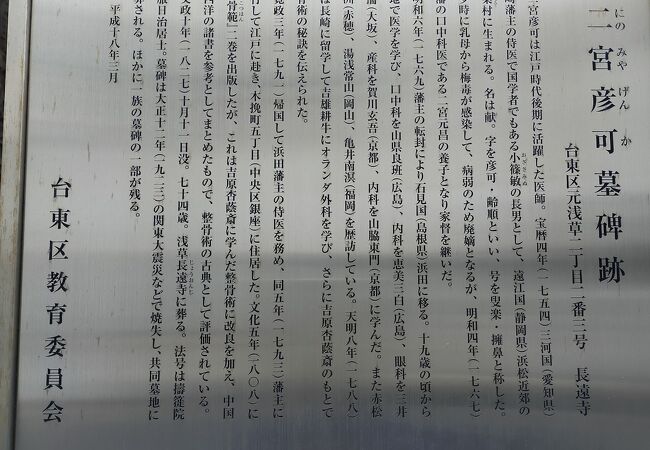 二宮彦可墓碑跡
にのみやげんか
台東区元浅草二丁目二番三号 長遠寺
宮彦可は江戸時代後期に活躍した医師。宝暦四年(一七五四)三河国(愛知県)
藩主の侍医で国学者でもある小篠敏の長男として、遠江国(静岡県)浜松近郊の
おざさみぬ
村に生まれる。名は献。字を彦可・齢順といい、号を叟楽・擁鼻と称した。
時に乳母から梅毒が感染して、病弱のため廃嫡となるが、明和四年(一七六七)
藩の口中科医である二宮元昌の養子となり家督を継いだ。
和六年(一七六九)藩主の転封により石見国(島根県)浜田に移る。十九歳の頃から
地で医学を学び、口中科を山県良班(広島)、内科を恵美三白(広島)、眼科を三井
(大坂)、産科を賀川玄吾(京都)、内科を山脇東門(京都)に学んだ。また赤松
洲(赤穂)、湯浅常山(岡山)、亀井南溟(福岡)を歴訪している。天明八年(一七八八)
は長崎に留学して吉雄耕牛にオランダ外科を学び、さらに吉原杏蔭斎のもとで
術の秘訣を伝えられた。
政三年(一七九一)帰国して浜田藩主の侍医を務め、同五年(一七九三)藩主に
行して江戸に赴き、木挽町五丁目(中央区銀座)に住居した。文化五年(一八〇八)に
骨範』二巻を出版したが、これは吉原杏蔭斎に学んだ整骨術に改良を加え、中国
西洋の諸書を参考としてまとめたもので、整骨術の古典として評価されている。
政十年(一八二七)十月十一日没。七十四歳。浅草長遠寺に葬る。法号は擣簁院
じょうおんじ
日治居士。墓碑は大正十二年(一九二三)の関東大震災などで焼失し、共同墓地に
葬される。ほかに一族の墓碑の一部が残る。
平成十八年三月
台東区教育委員会